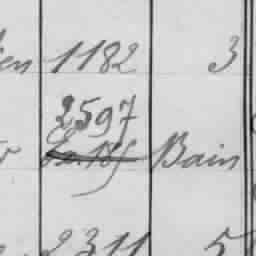 en 1182 3
2597
Bain
2311 5